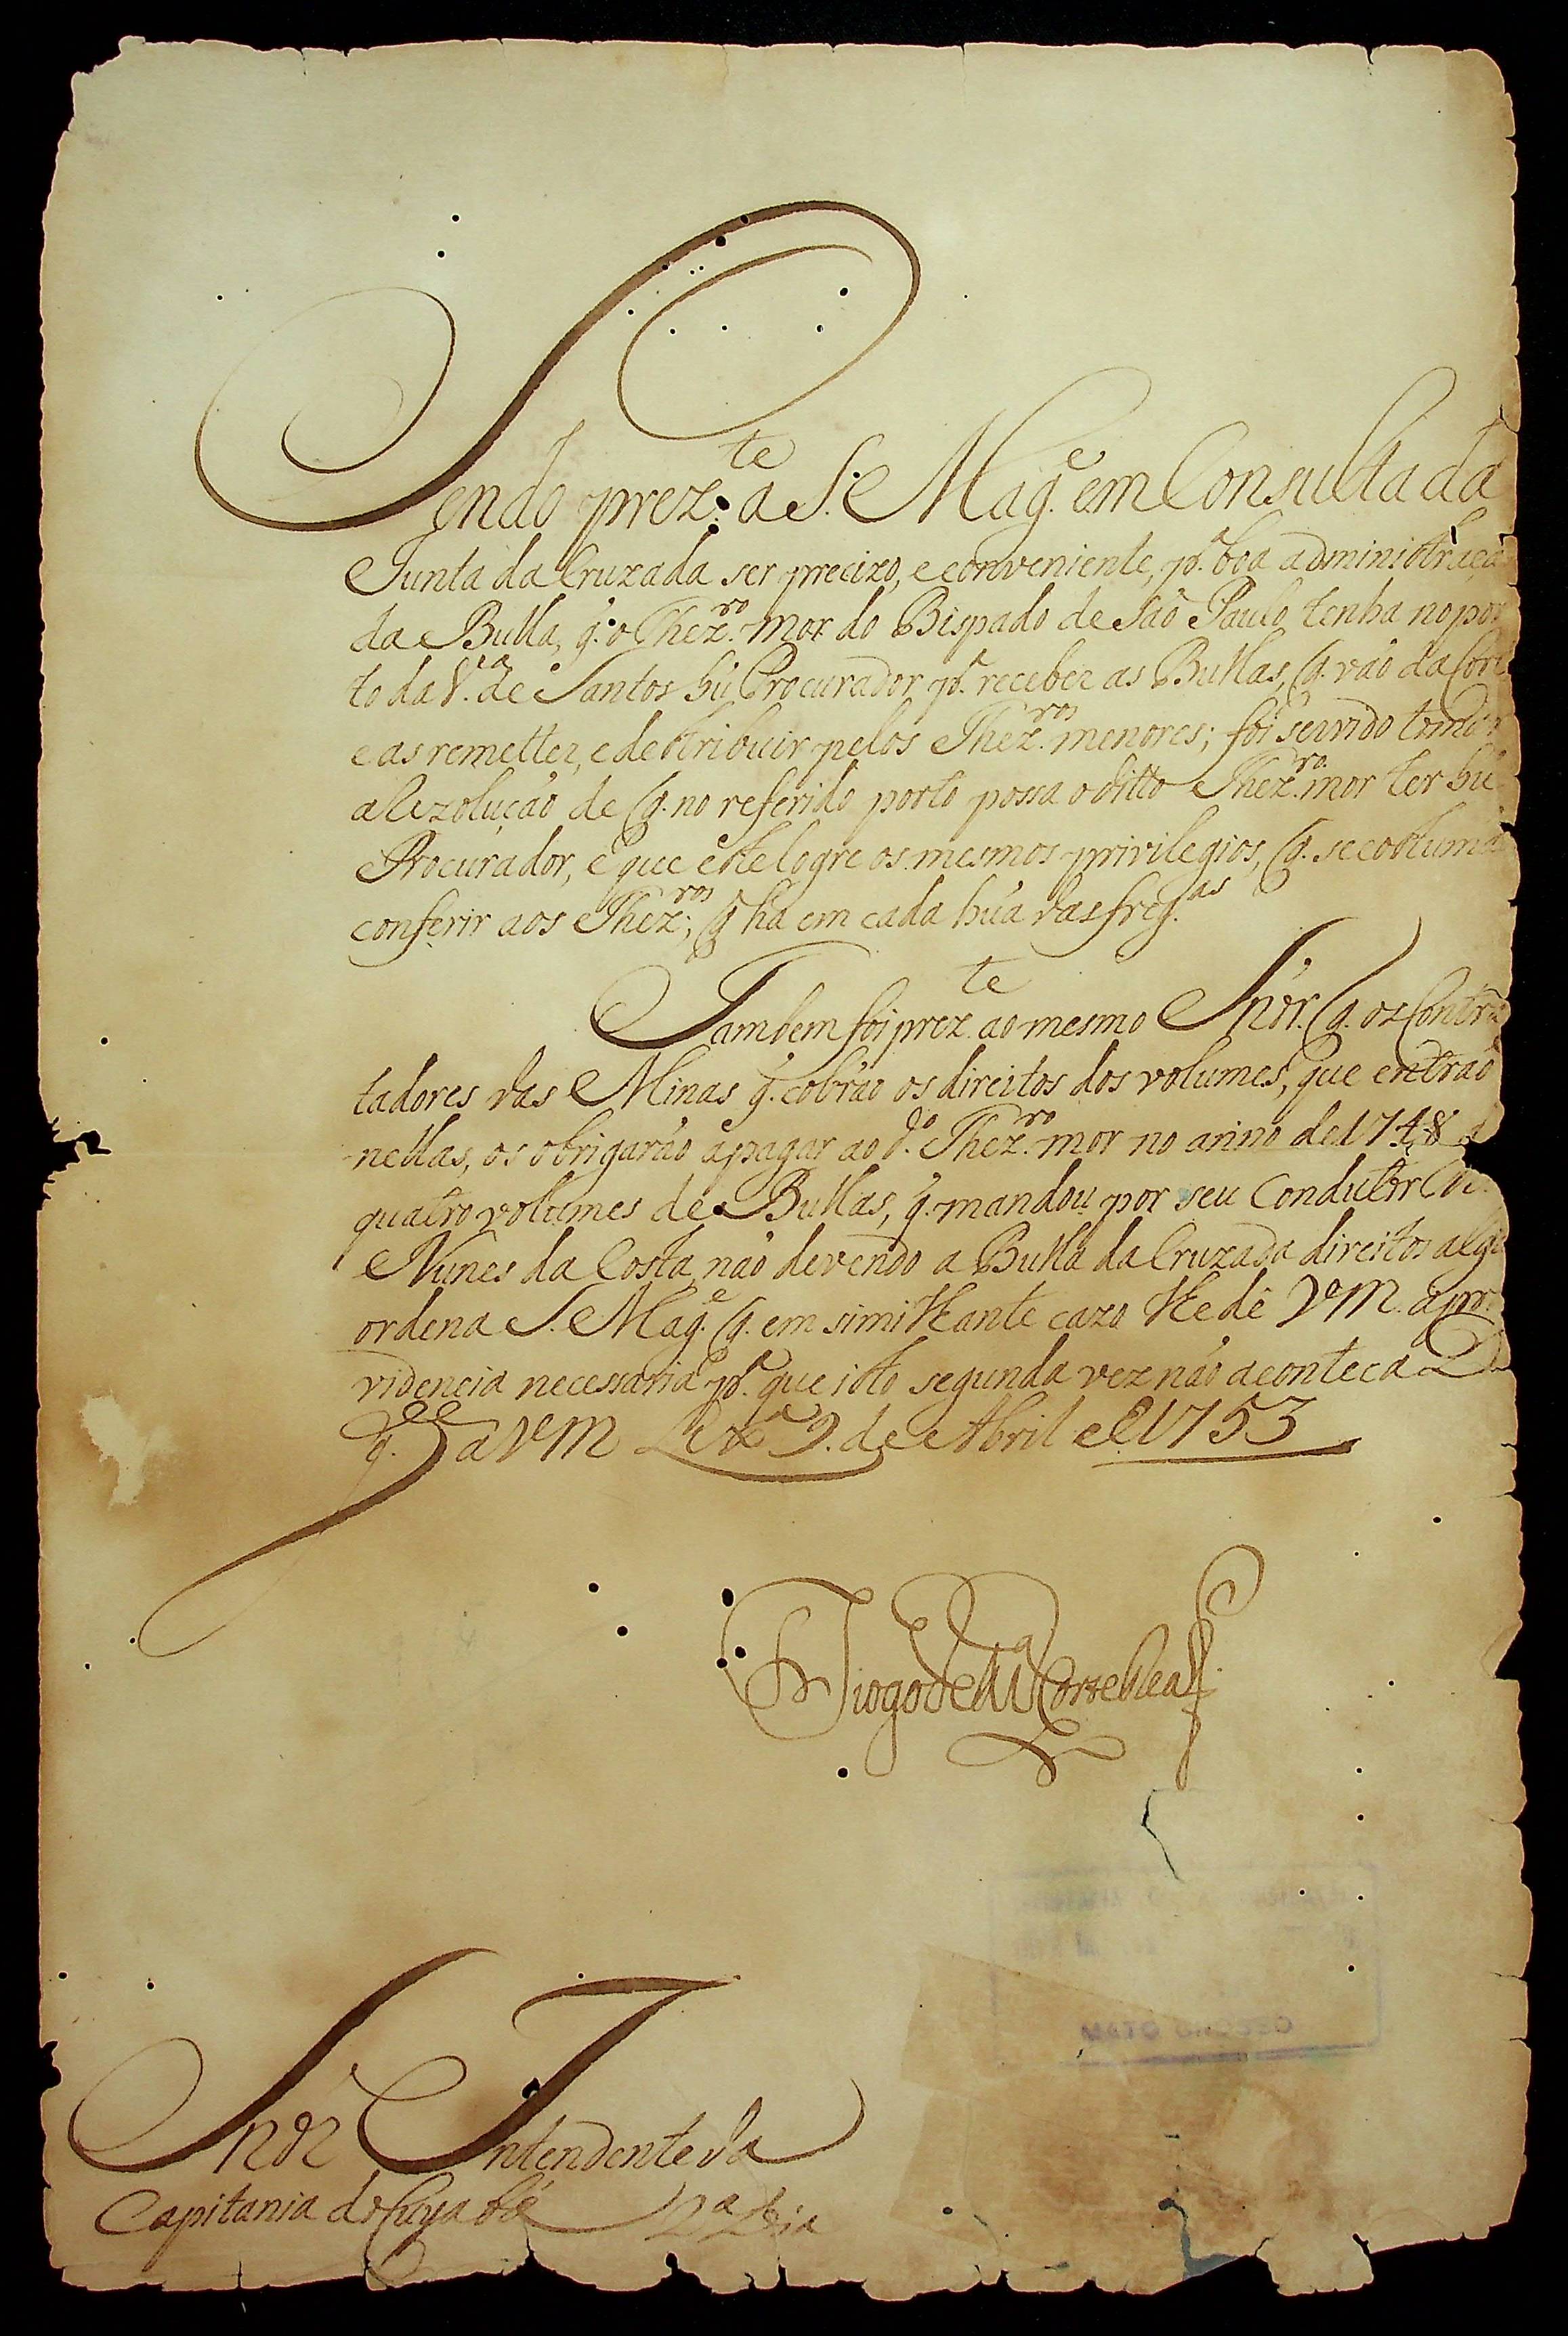 Sendo prez.te a S. Mag.e em Consulta da
Junta da Cruzada ser precizo, e conveniente, p.a boa administraçã
da Bulla, q. o Thez.ro mor do Bispado de Saõ Paulo tenha no por
to da V.a de Santos hu Procurador p.a receber as Bullas, q. vaõ da Cort
e as remetter, e destribuir pelos Thez.ros menores; foi servido tomar
a Rezoluçaõ de q. no referido porto possa o ditto Thez.ro mor ter hu
Procurador, e que este logre os mesmos privilegios, q. se costuma
conferir aos Thez.ros; q ha em cada hũa das freg.as
Tambem foi prez.te ao mesmo Snõr. q. os Contra
tadores das Minas q. cobraõ os direitos dos volumes, que entraõ
nellas, os obrigaraõ a pagar ao d.o Thez.ro mor no anno de 1748
quatro volumes de Bullas, q. mandou por seu Conductor
Nunes da Costa, naõ devendo a Bulla da Cruzada direitos alg
ordena S. Mag.e q. em similhante cazo lhe dê VM. a pro
videncia necessaria p.a que isto segunda vez naõ aconteca D
g.e a VM Lx.a 9. de Abril de 1753
Diogo de M.ca Corte Real
Snõr Intendente da
Capitania de Cuyabá 2.a Via
MATO GROSSO